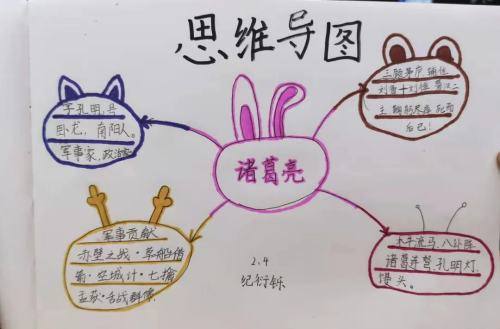 思维导图
字孔明,号
卧龙,南阳人。
军事家,政治家
三顾茅庐 辅佐
刘备+刘禅 蜀汉二
主 鞠躬尽瘁 死而
后已!
诸葛亮
军事贡献
赤壁之战·草船借
箭·空城计·七擒
孟获·舌战群儒
木牛流马、八卦阵
诸葛连弩、孔明灯、
馒头。
2.4